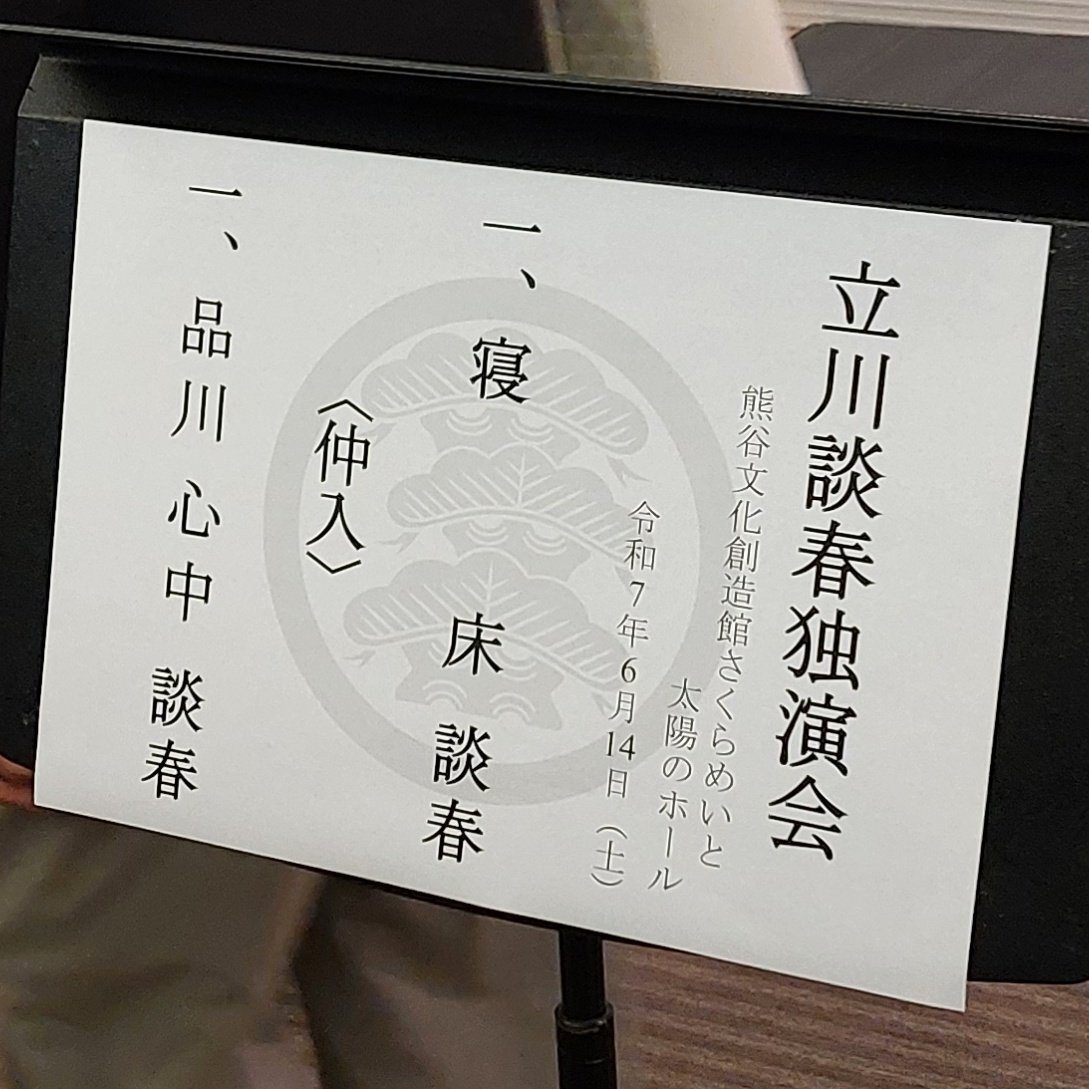 立川談春独演会
熊谷文化創造館さくらめいと
太陽のホール
令和7年6月14日（土）
一、寝床 談春
〈仲入〉
一、品川心中 談春